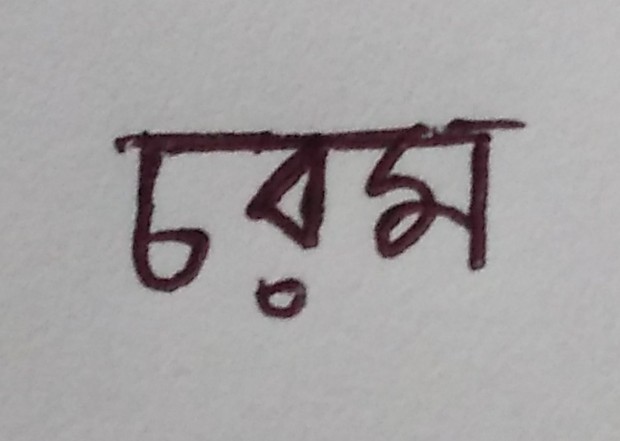 চরম